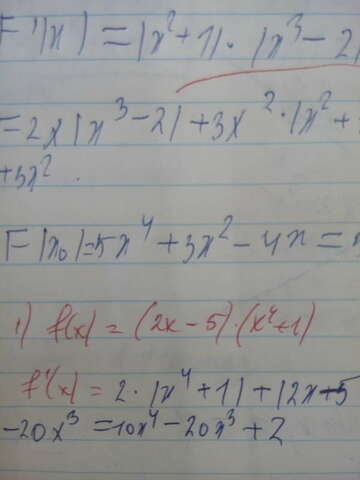 F'(x) = (x² + 1) · (x³ - 2)
= 2x(x³ - 2) + 3x² · (x² +
+3x² .
F'(x₀) = 5x⁴ + 3x² - 4x =
1) f(x) = (2x - 5) · (x⁴ + 1)
f'(x) = 2 · (x⁴ + 1) + (2x - 5
-20x³ = 10x⁴ - 20x³ + 2